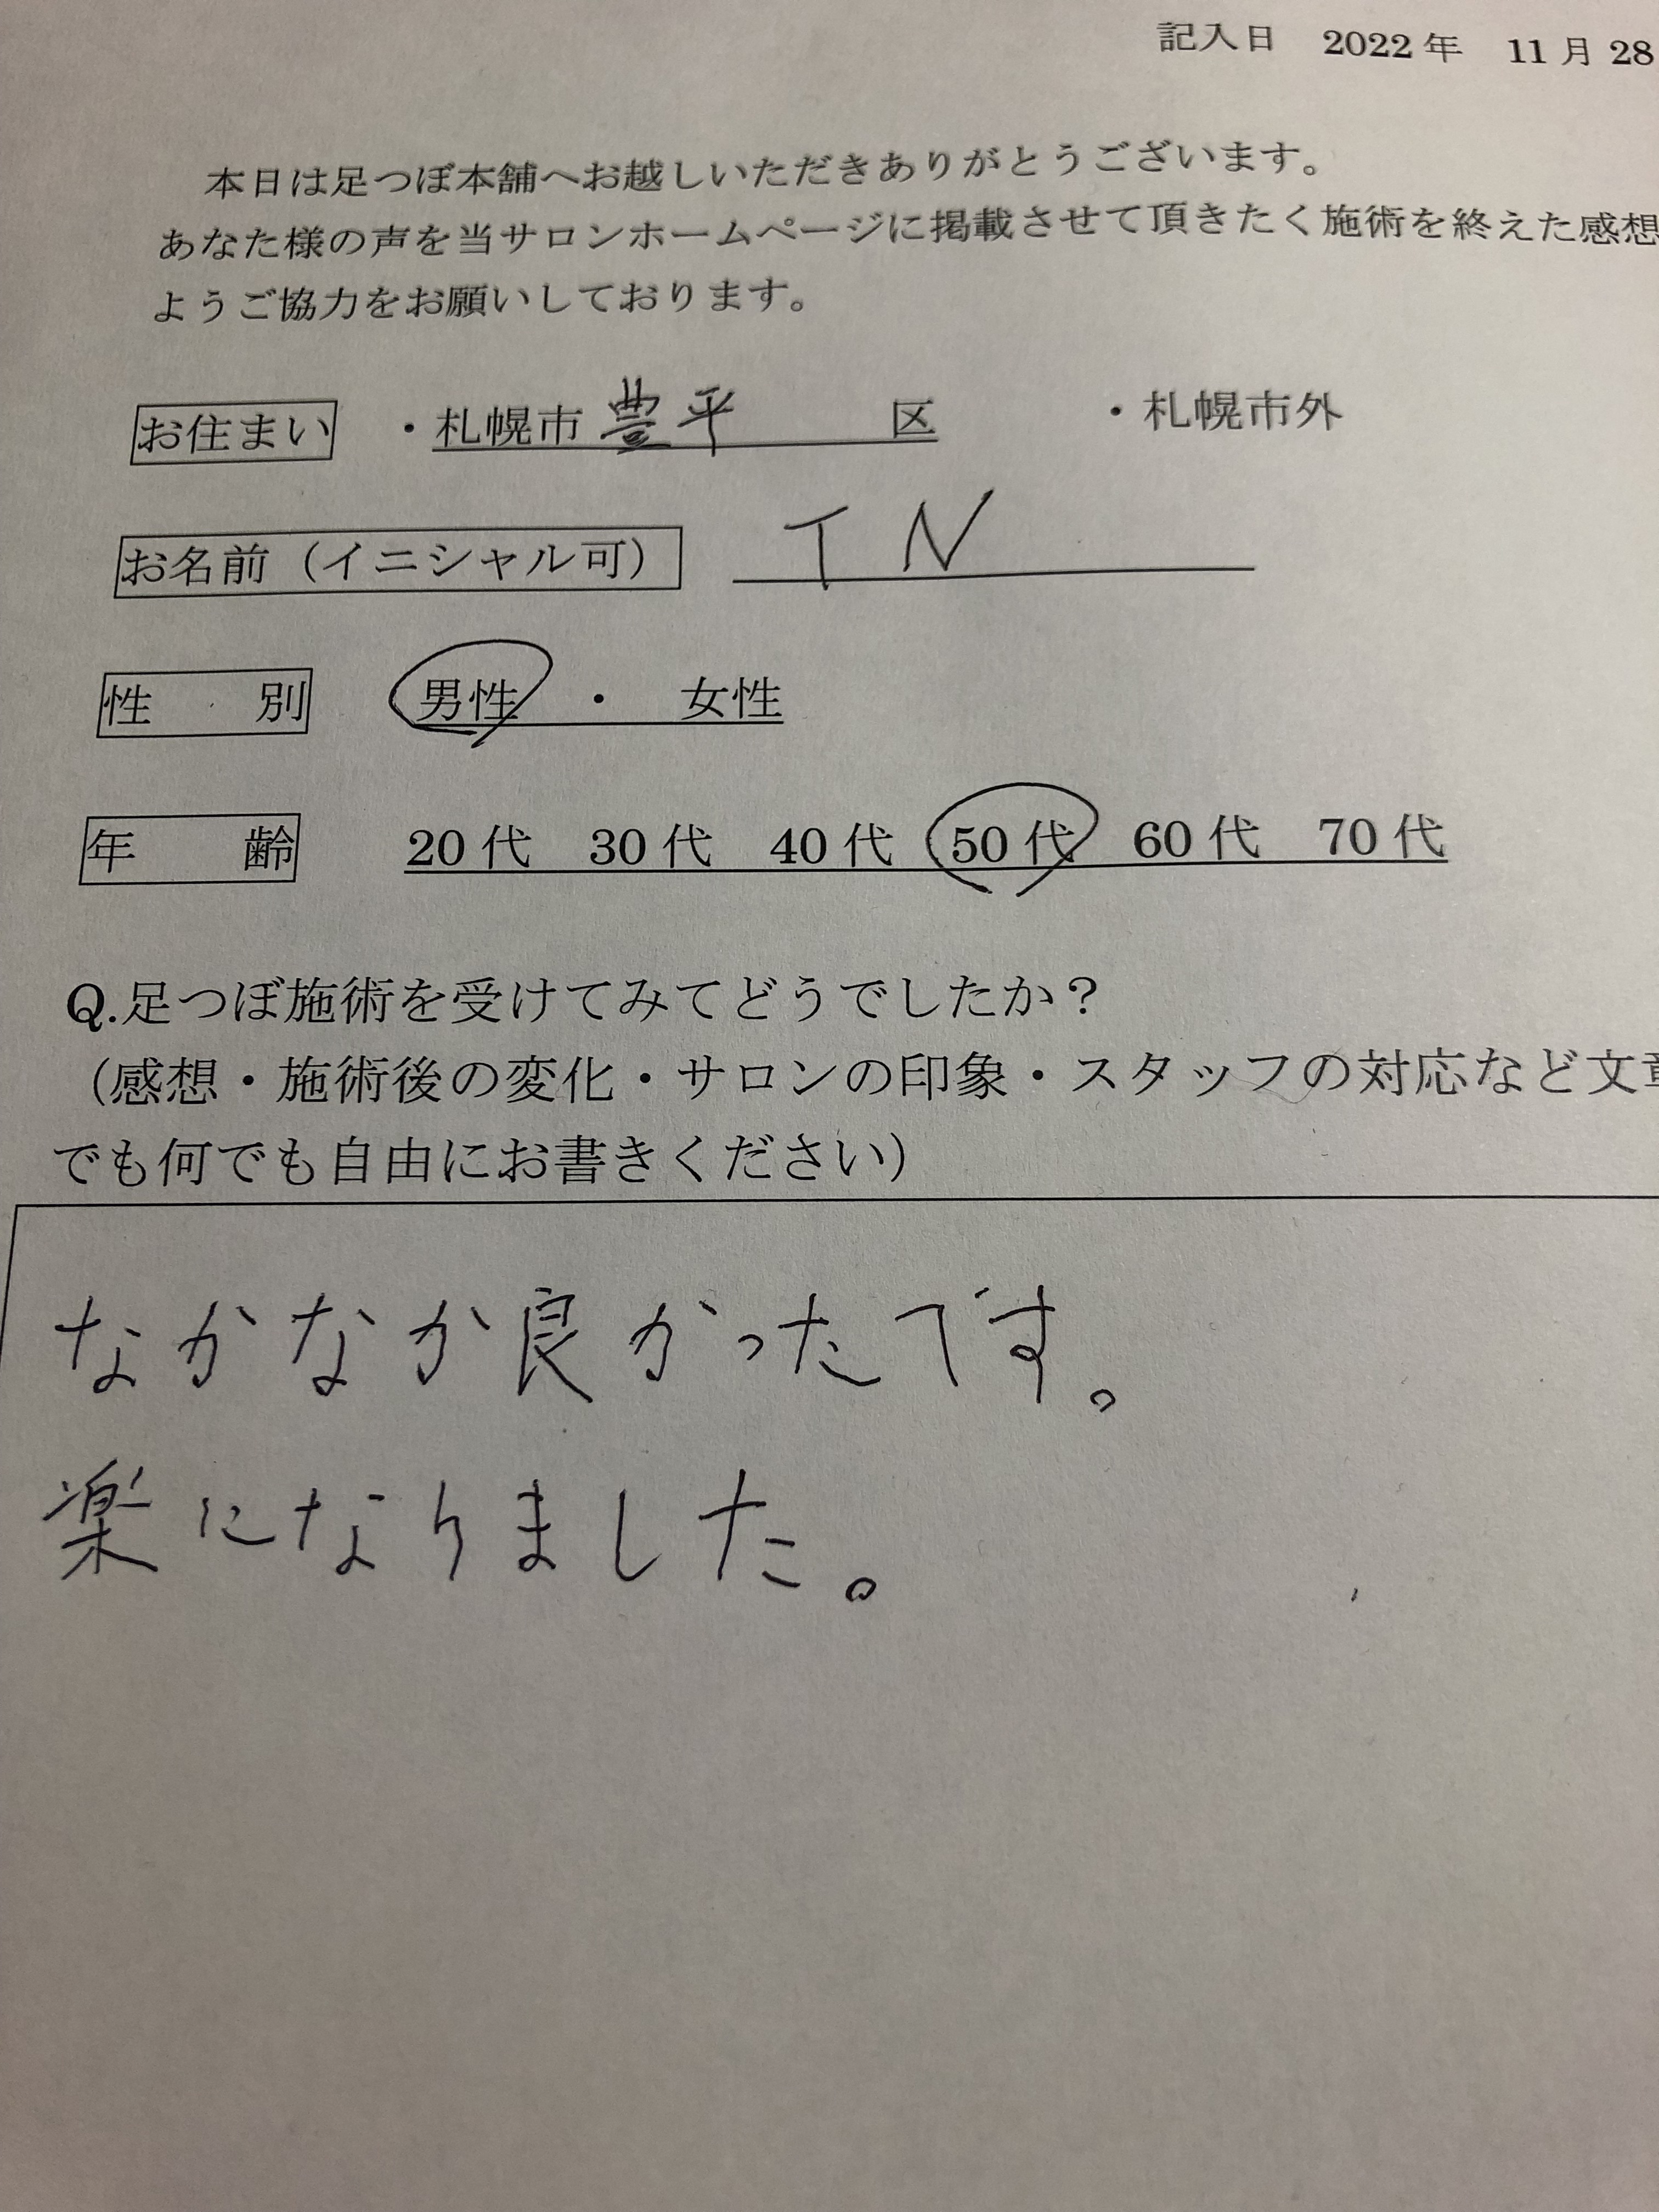 記入日 2022 年 11 月 28
本日は足つぼ本舗へお越しいただきありがとうございます。
あなた様の声を当サロンホームページに掲載させて頂きたく施術を終えた感想
ようご協力をお願いしております。
お住まい ・札幌市 豊平 区 ・札幌市外
お名前（イニシャル可） T N
性 別 男性 ・ 女性
年 齢 20 代 30 代 40 代 50 代 60 代 70 代
Q.足つぼ施術を受けてみてどうでしたか？
（感想・施術後の変化・サロンの印象・スタッフの対応など文章
でも何でも自由にお書きください）
なかなか良かったです。
楽になりました。